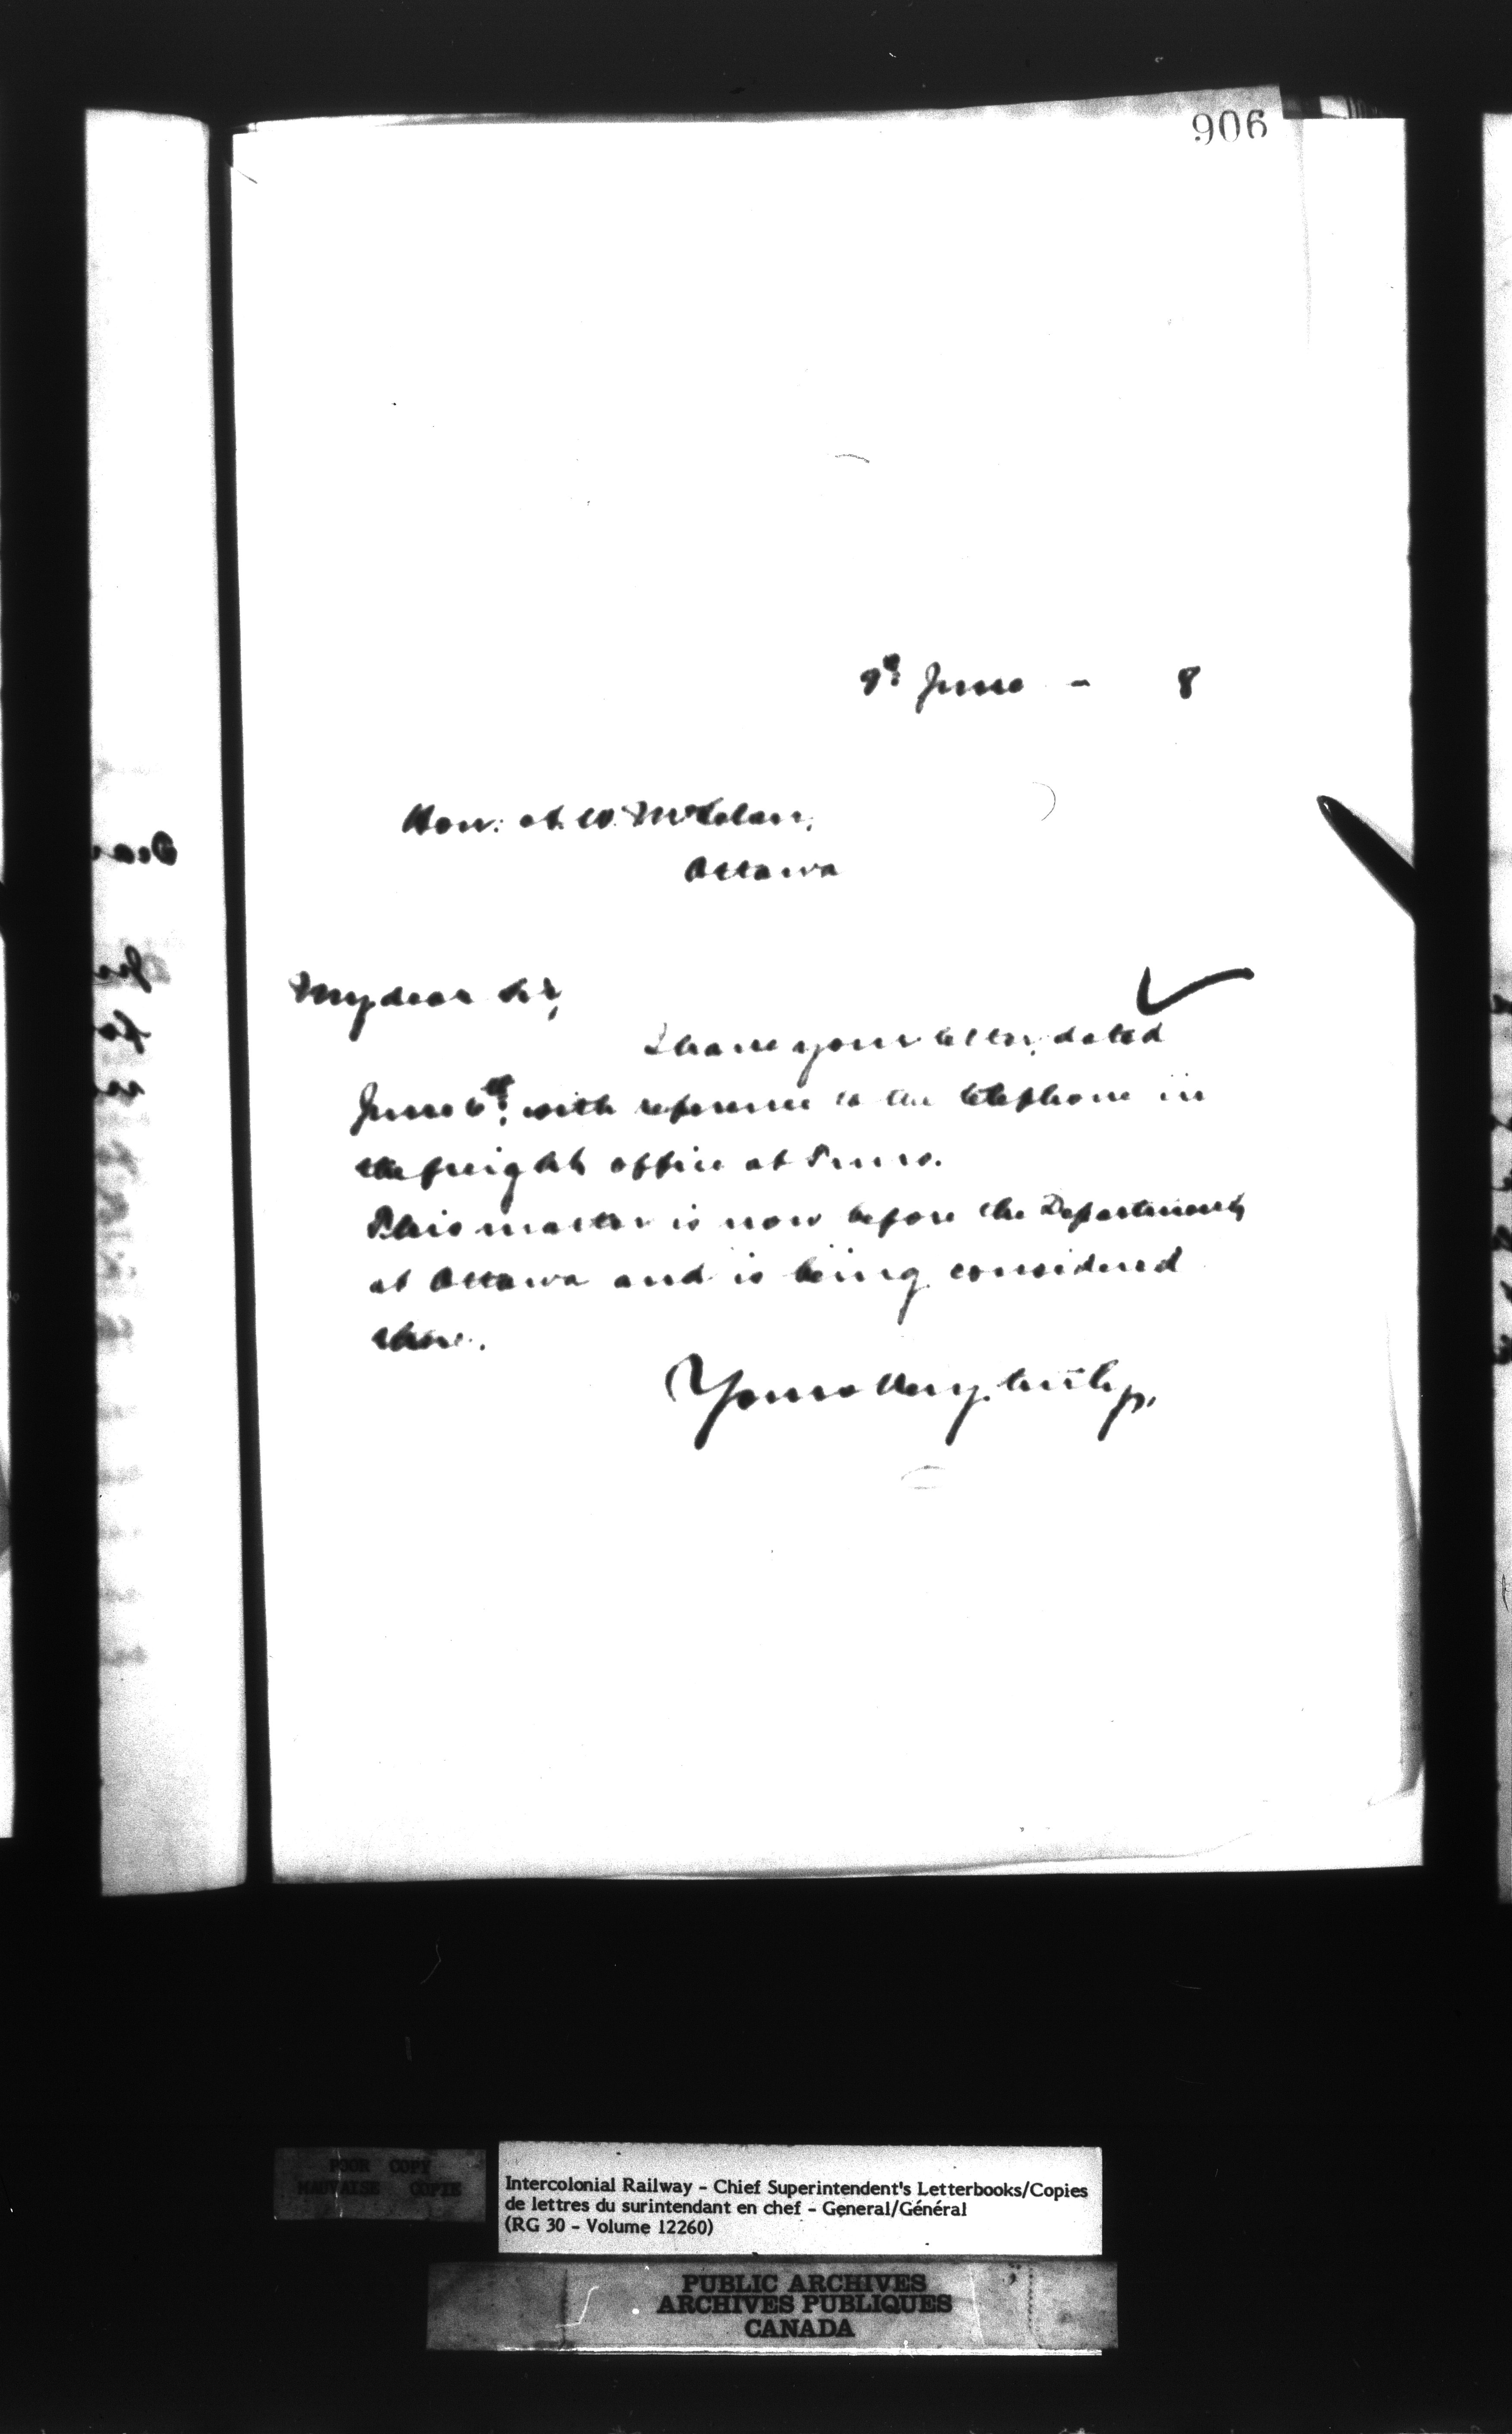 906
9th June - 8
Hon: A. W. McLelan,
Ottawa
My dear Sir,
I have your letter, dated
June 6th, with reference to the telephone in
the freight office at Truro.
This matter is now before the Department
at Ottawa and is being considered
there.
Yours very truly,
Dear
POOR COPY
MAUVAISE COPIE
Intercolonial Railway - Chief Superintendent's Letterbooks/Copies
de lettres du surintendant en chef - General/Général
(RG 30 - Volume 12260)
PUBLIC ARCHIVES
ARCHIVES PUBLIQUES
CANADA